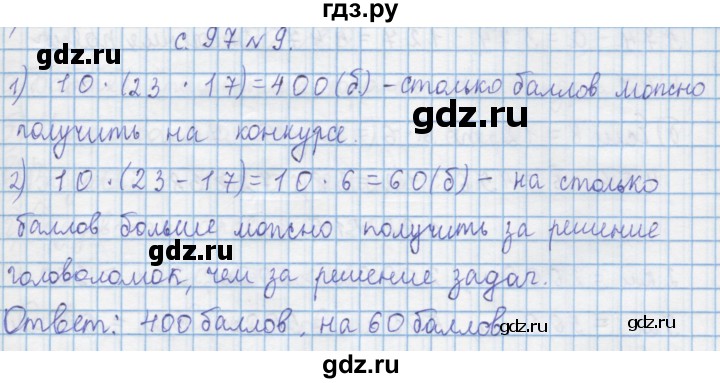 гдз.ру
с. 97 № 9.
gdz.ru
gdz.ru
1) 10 · (23 · 17) = 400 (б) – столько баллов можно
gdz.ru
получить на конкурсе.
2) 10 · (23 – 17) = 10 · 6 = 60 (б) – на столько
баллов больше можно получить за решение
gdz.ru
головоломок, чем за решение задач.
Ответ: 400 баллов, на 60 баллов.
gdz.ru
gdz.ru
gdz.ru